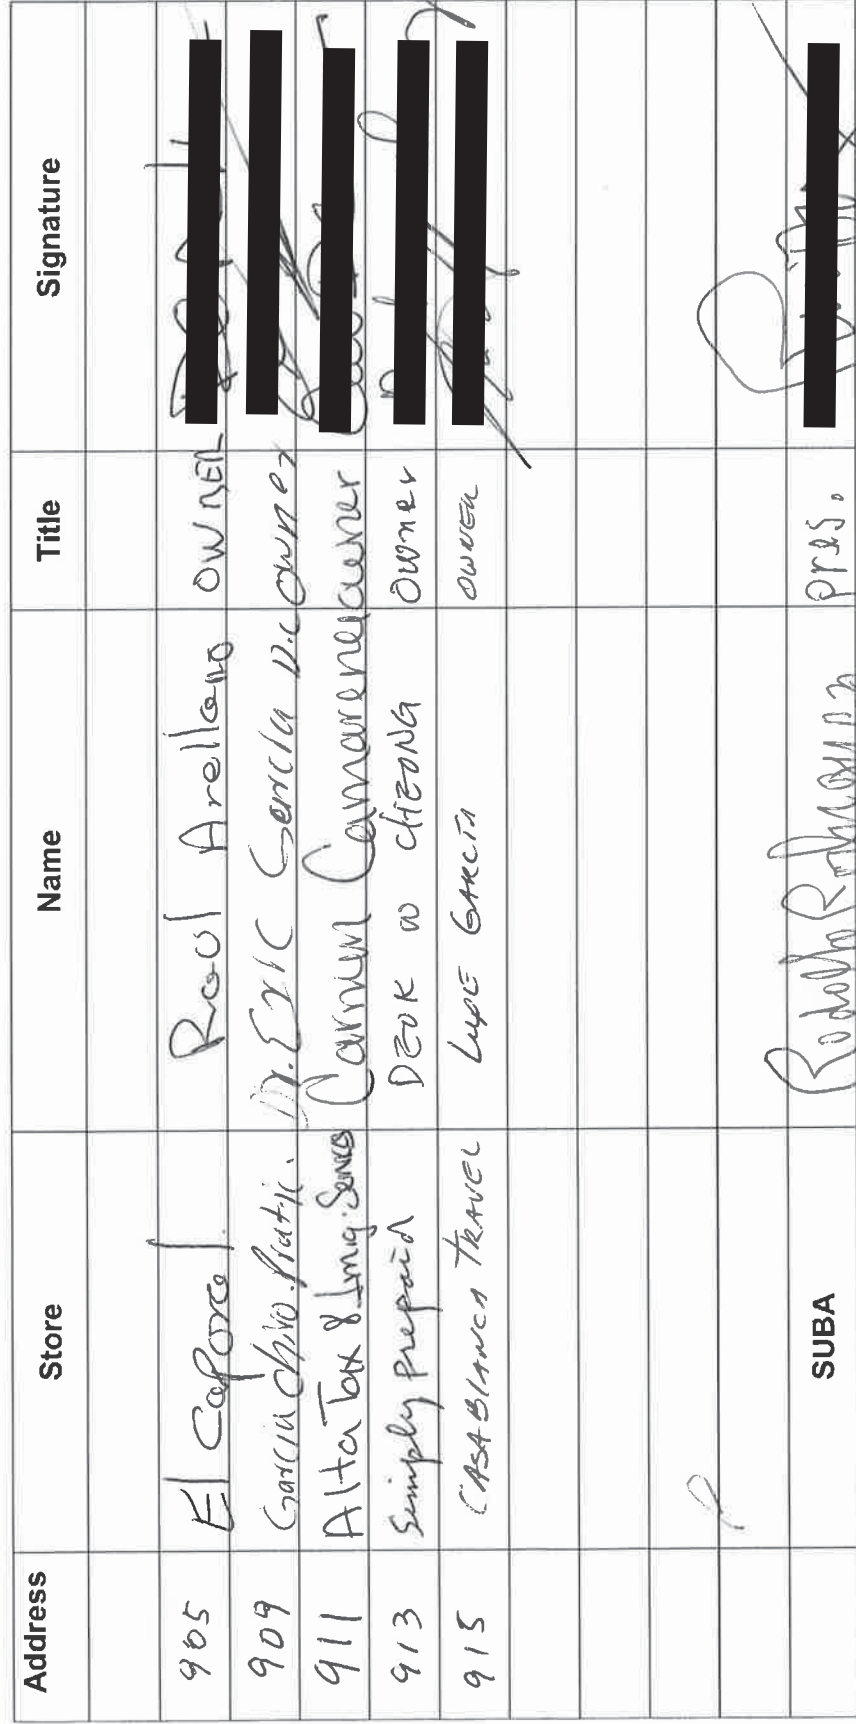 Address Store Name Title Signature
905 El Caporal Raul Arellano OWNER
909 Garcia Chiro. Dr. Eric Garcia D.C owner
911 Alta Tax & Imig. Carmen Camarena owner
913 Simply Prepaid DEOK W CHEONG Owner
915 CASABLANCA TRAVEL LUPE GARCIA OWNER
SUBA Rodolfo pres.